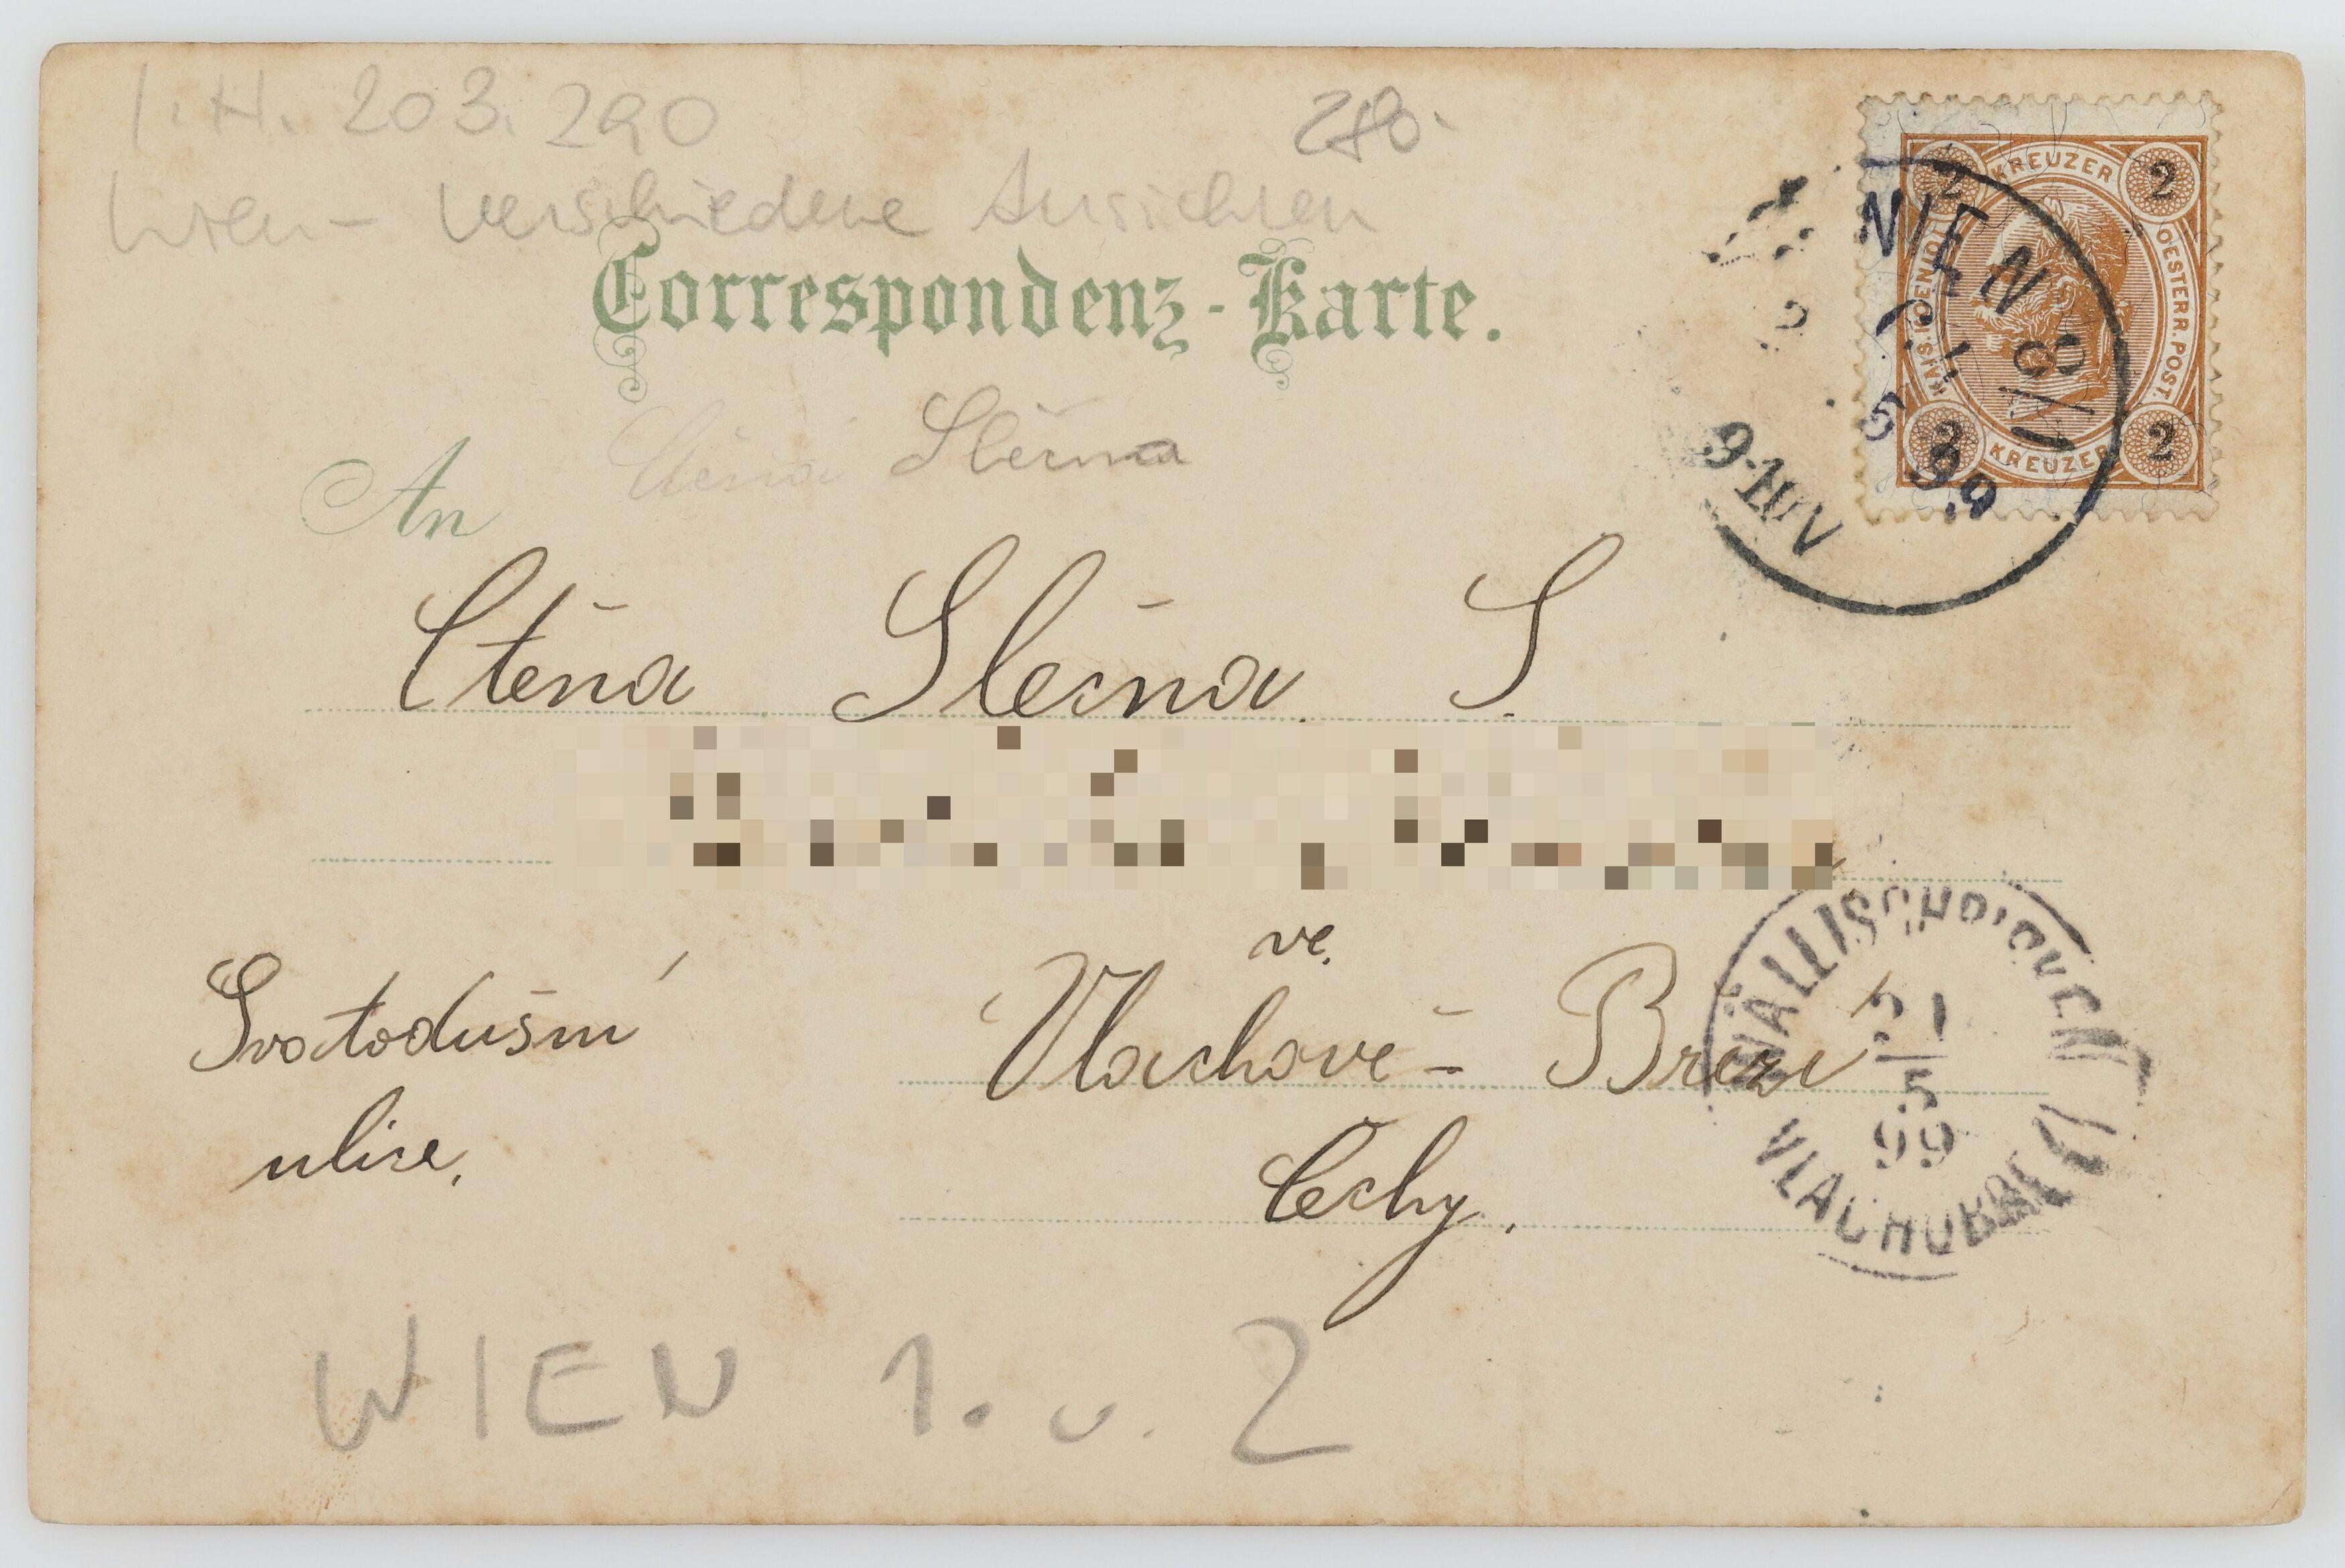 I.N. 203.290
280.-
Wien - verschiedene Ansichten
Correspondenz-Karte.
Slečna
An
Ctěná Slečna. S.
ve
Svatodušní
Vlachově-Březí
ulice.
Čechy.
WIEN 1. u. 2
KREUZER
2 2
KAIS. KOENIGL.
OESTERR. POST.
2 2
KREUZER
WIEN 8/1
5
99
9-10V
WÄLLISCHBIRKEN
21
5
99
VLACHOBŘEZÍ